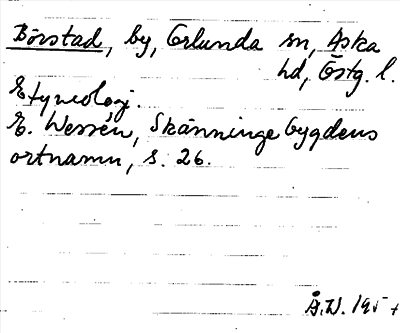 Börstad, by, Orlunda sn, Aska
hd, Östg. l.
Etymologi.
E. Wessén, Skänningebygdens
ortnamn, s. 26.
Å.W. 195